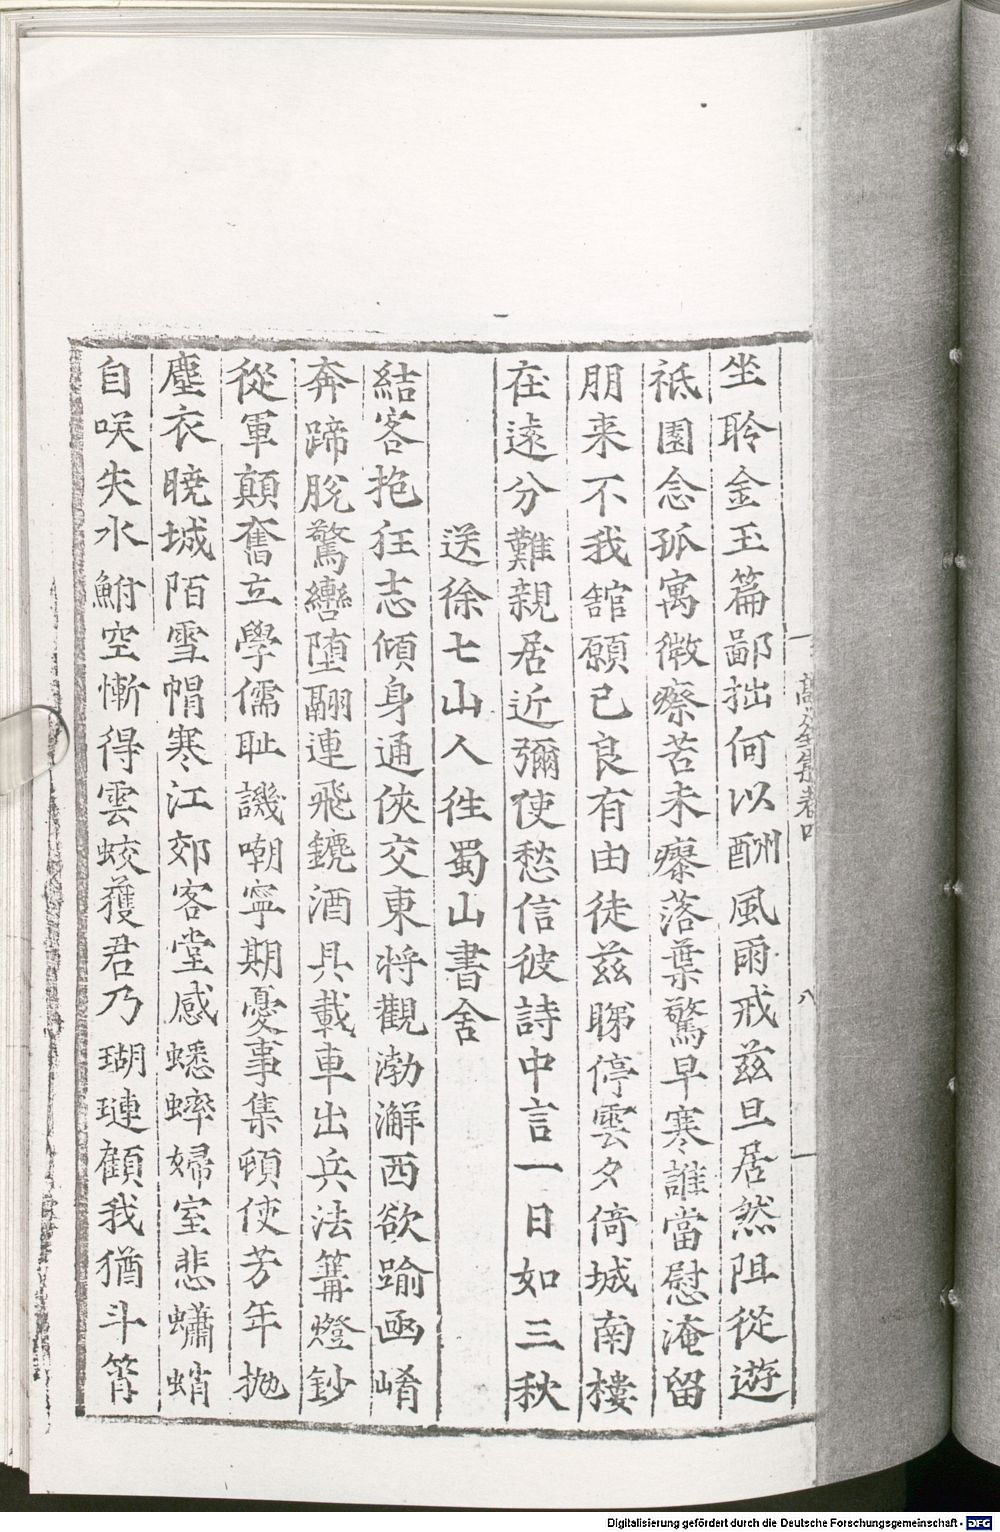 坐聆金玉篇鄙拙何以酬風雨戒兹旦居然阻從遊
祗園念孤寓微瘵苦未瘳落葉驚早寒誰當慰淹留
朋来不我舘願已良有由徒兹睇停雲夕倚城南樓
在遠分難親居近彌使愁信彼詩中言一日如三秋
送徐七山人徃蜀山書舍
結客抱狂志傾身通俠交東将觀渤澥西欲踰凾崤
奔蹄脫驚轡墮翮連飛鐃酒具載車出兵法篝燈鈔
從軍顛奮立學儒耻譏嘲寧期憂事集頓使芳年抛
塵衣曉城陌雪帽寒江郊客堂感蟋蟀婦室悲蠨蛸
自咲失水鮒空慚得雲蛟蒦君乃瑚璉顧我猶斗筲
高 集卷四
八
Digitalisierung gefördert durch die Deutsche Forschungsgemeinschaft - DFG